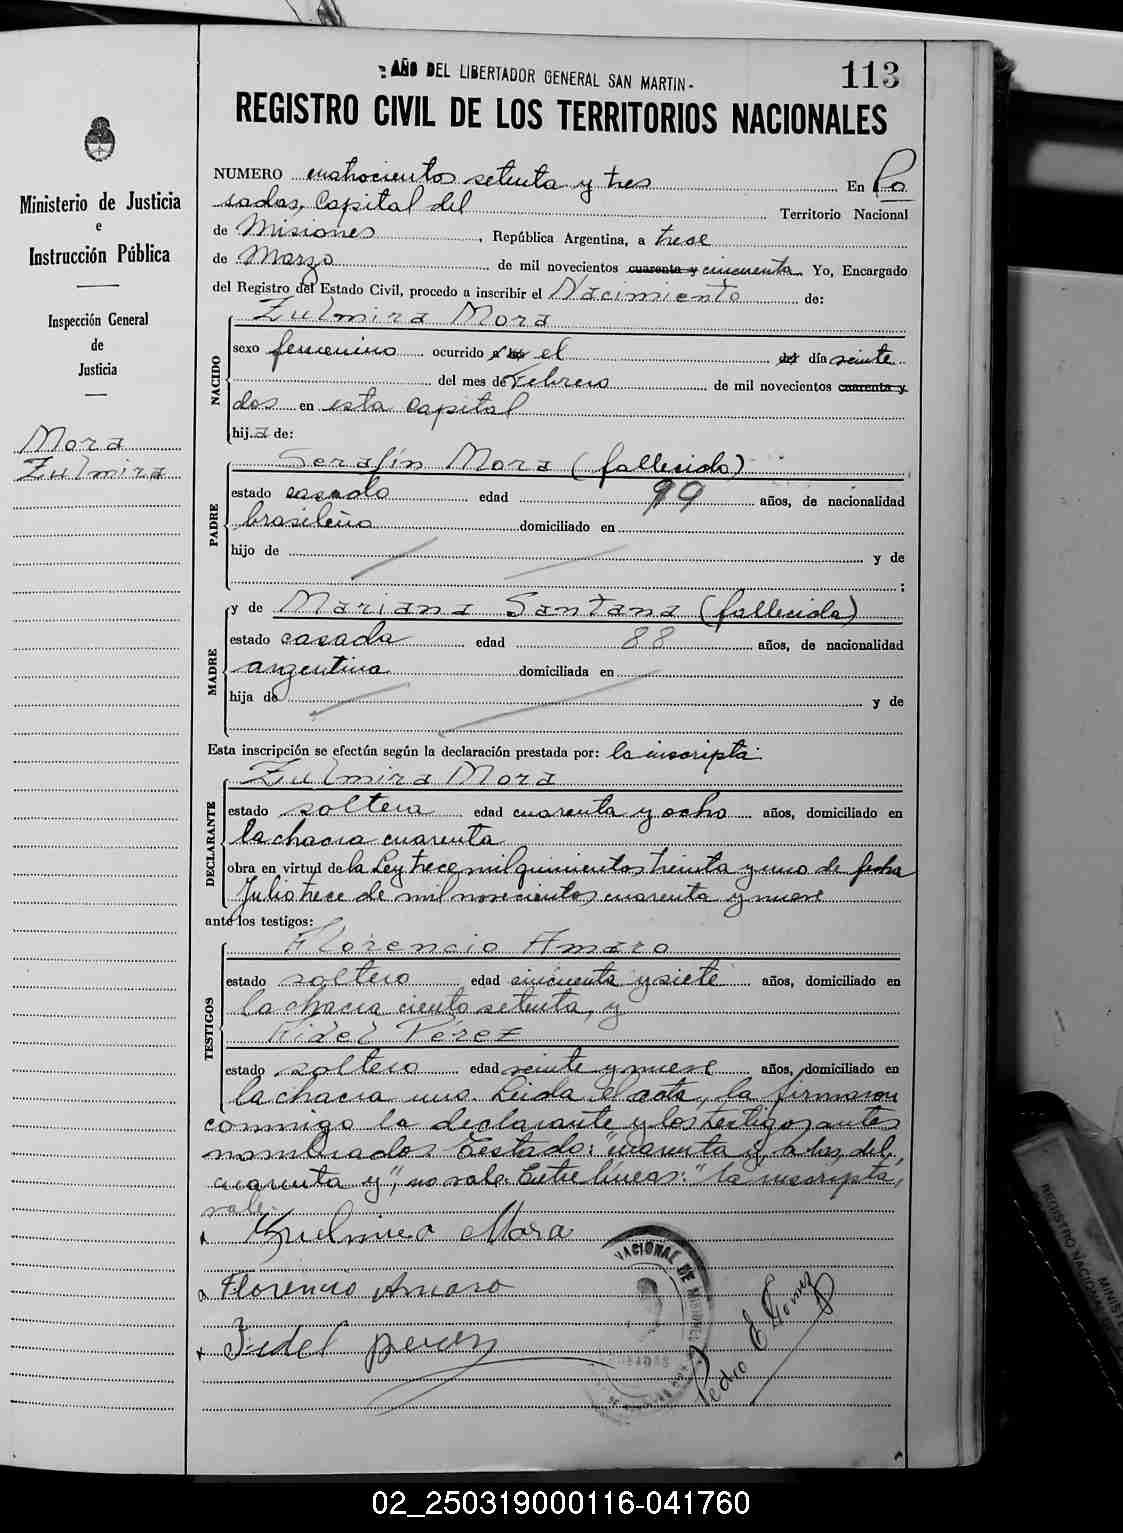 - AÑO DEL LIBERTADOR GENERAL SAN MARTIN -
113
REGISTRO CIVIL DE LOS TERRITORIOS NACIONALES
Ministerio de Justicia
e
Instrucción Pública
Inspección General
de
Justicia
Mora
Zulmira
NUMERO cuatrocientos setenta y tres En Po
sadas, Capital del Territorio Nacional
de Misiones, República Argentina, a trece
de Marzo de mil novecientos cuarenta y cincuenta. Yo, Encargado
del Registro del Estado Civil, procedo a inscribir el Nacimiento de:
NACIDO
Zulmira Mora
sexo femenino ocurrido a las el del día veinte
del mes de Febrero de mil novecientos cuarenta y
dos en esta Capital
hija de:
PADRE
Serafín Mora (fallecido)
estado casado edad 99 años, de nacionalidad
brasileño domiciliado en
hijo de y de
;
MADRE
y de Mariana Santana (fallecida)
estado casada edad 88 años, de nacionalidad
argentina domiciliada en
hija de y de
Esta inscripción se efectúa según la declaración prestada por: la inscripta
DECLARANTE
Zulmira Mora
estado soltera edad cuarenta y ocho años, domiciliado en
la chacra cuarenta
obra en virtud de la Ley trece mil quinientos treinta y uno de fecha
Julio trece de mil novecientos cuarenta y nueve
ante los testigos:
TESTIGOS
Florencio Amaro
estado soltero edad cincuenta y siete años, domiciliado en
la chacra ciento setenta, y
Fidel Pérez
estado soltero edad veinte y nueve años, domiciliado en
la chacra uno. Leida el acta, la firmaron
conmigo la declarante y los testigos antes
nombrados. Testado: "cuarenta y, a las, del,
cuarenta y", no vale. Entre líneas: "la inscripta,
vale.
Zulmira Mora
Florencio Amaro
Fidel perez
NACIONAL DE MISIONES
POSADAS
Pedro E Gomez
MINISTE
REGISTRO NACIONAL DE
02_250319000116-041760